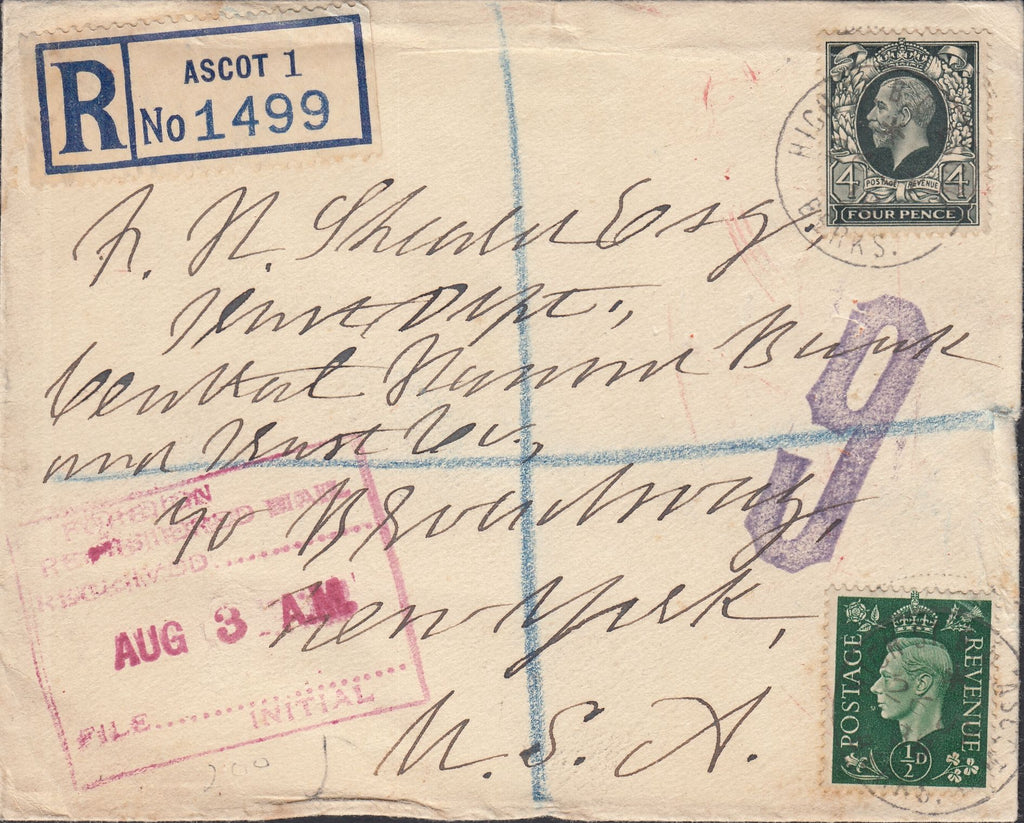 R
ASCOT 1
No 1499
POSTAGE REVENUE
4 4
FOUR PENCE
BERKS.
N. Esq
Trust Dept.,
Central Hanover Bank
and Trust Co.,
70 Broadway,
New York,
U. S. A.
9
FOREIGN
REGISTERED MAIL
RECEIVED
AUG 3 A.M.
FILE INITIAL
POSTAGE REVENUE
½D